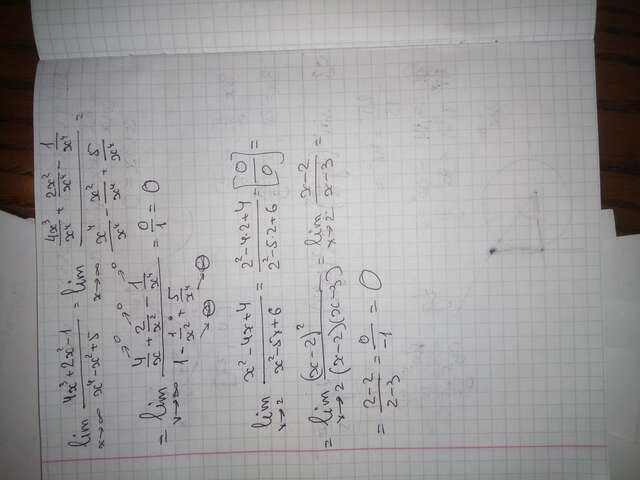 lim x→∞ (4x³+2x²-1)/(x⁴-x²+5) = lim x→∞ (4x³/x⁴ + 2x²/x⁴ - 1/x⁴)/(x⁴/x⁴ - x²/x⁴ + 5/x⁴) =
= lim x→∞ (4/x + 2/x² - 1/x⁴)/(1 - 1/x² + 5/x⁴) = 0/1 = 0
lim x→2 (x²-4x+4)/(x²-5x+6) = (2²-4·2+4)/(2²-5·2+6) = [0/0] =
= lim x→2 (x-2)²/((x-2)(x-3)) = lim x→2 (x-2)/(x-3) =
= (2-2)/(2-3) = 0/-1 = 0